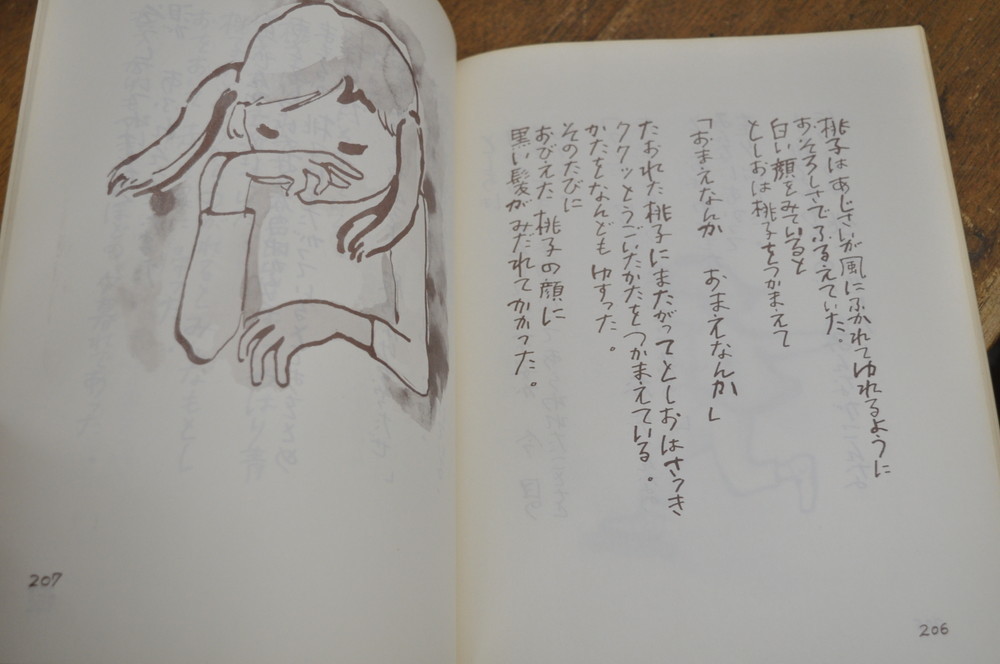 桃子はあじさいが風にふかれてゆれるように
おそろしさでふるえていた。
白い顔をみていると
としおは桃子をつかまえて
「おまえなんか　おまえなんか」
たおれた桃子にまたがってとしおはさっき
ククッとうごいたかたをつかまえている。
かたをなんどもゆすった。
そのたびに
おびえた桃子の顔に
黒い髪がみだれてかかった。
206
207